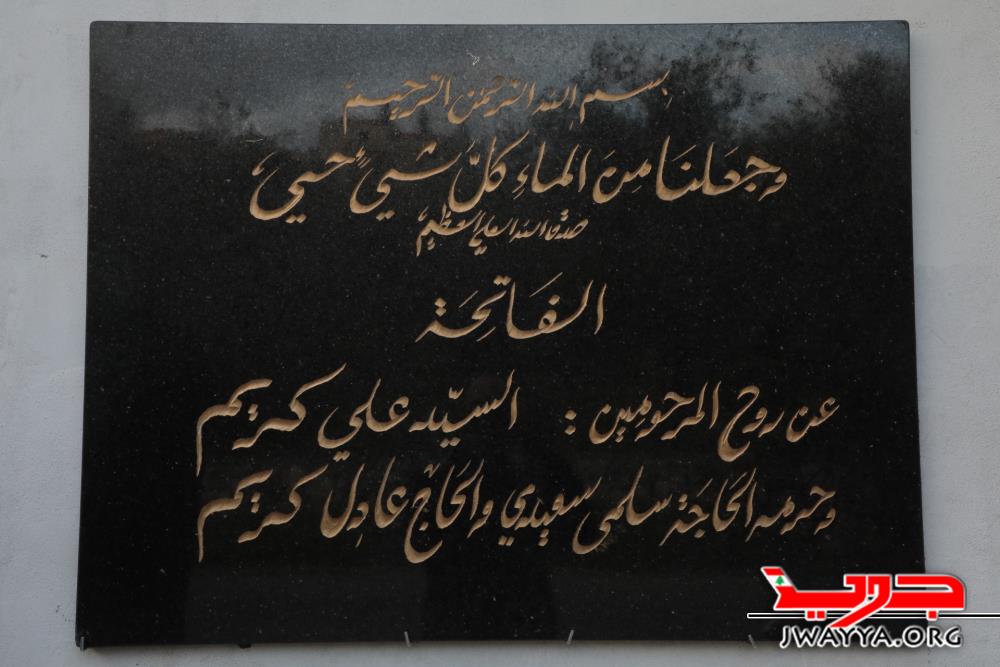 بسم الله الرحمن الرحيم
وجعلنا من الماء كل شيء حي
صدق الله العلي العظيم
الفاتحة
عن روح المرحومين : السيد علي كريم
وحرمه الحاجة سلمى سويدي والحاج عادل كريم
جويا
JWAYYA.ORG